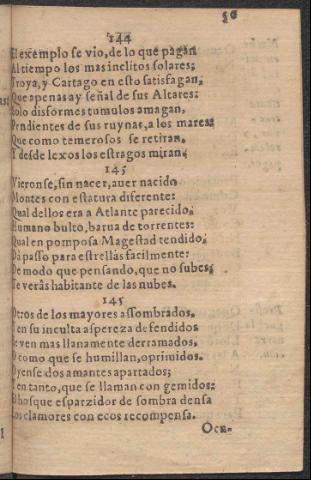 50
144
El exemplo se vio, de lo que pagan
Al tiempo los mas inclitos solares;
Troya, y Cartago en esto satisfagan,
Que apenas ay señal de sus Altares:
Solo disformes tumulos amagan,
Pendientes de sus ruynas, a los mares
Que como temerosos se retiran,
Y desde lexos los estragos miran.
145
Vieronse, sin nacer, auer nacido
Montes con estatura diferente:
Qual dellos era a Atlante parecido,
Humano bulto, barua de torrentes:
Qual en pomposa Magestad tendido,
Dà passo para estrellas facilmente:
De modo que pensando, que no subes,
Te veràs habitante de las nubes.
145
Otros de los mayores assombrados,
Y en su inculta aspereza defendidos
Se ven mas llanamente derramados,
O como que se humillan, oprimidos.
Oyense dos amantes apartados;
Y en tanto, que se llaman con gemidos:
El bosque esparzidor de sombra densa
Los clamores con ecos recompensa.
Ocu-